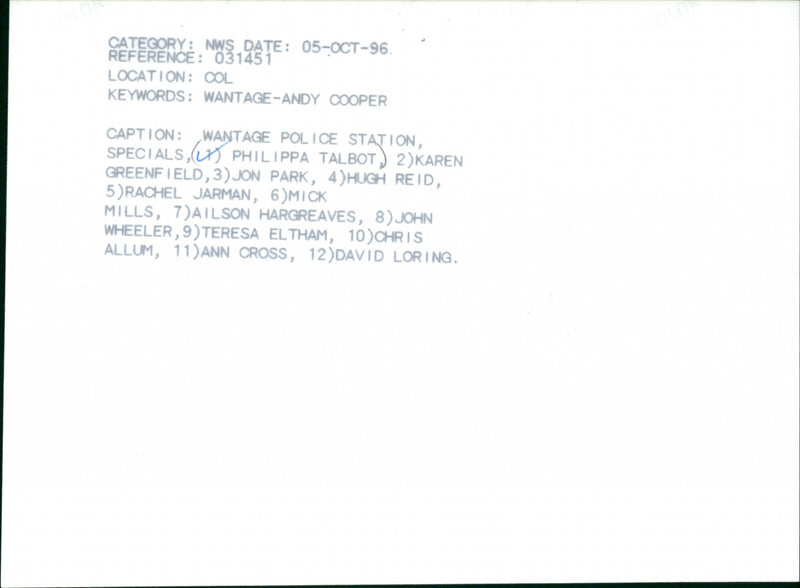 CATEGORY: NWS DATE: 05-OCT-96
REFERENCE: 031451
LOCATION: COL
KEYWORDS: WANTAGE-ANDY COOPER
CAPTION: WANTAGE POLICE STATION,
SPECIALS,(1) PHILIPPA TALBOT, 2)KAREN
GREENFIELD,3)JON PARK, 4)HUGH REID,
5)RACHEL JARMAN, 6)MICK
MILLS, 7)AILSON HARGREAVES, 8)JOHN
WHEELER,9)TERESA ELTHAM, 10)CHRIS
ALLUM, 11)ANN CROSS, 12)DAVID LORING.